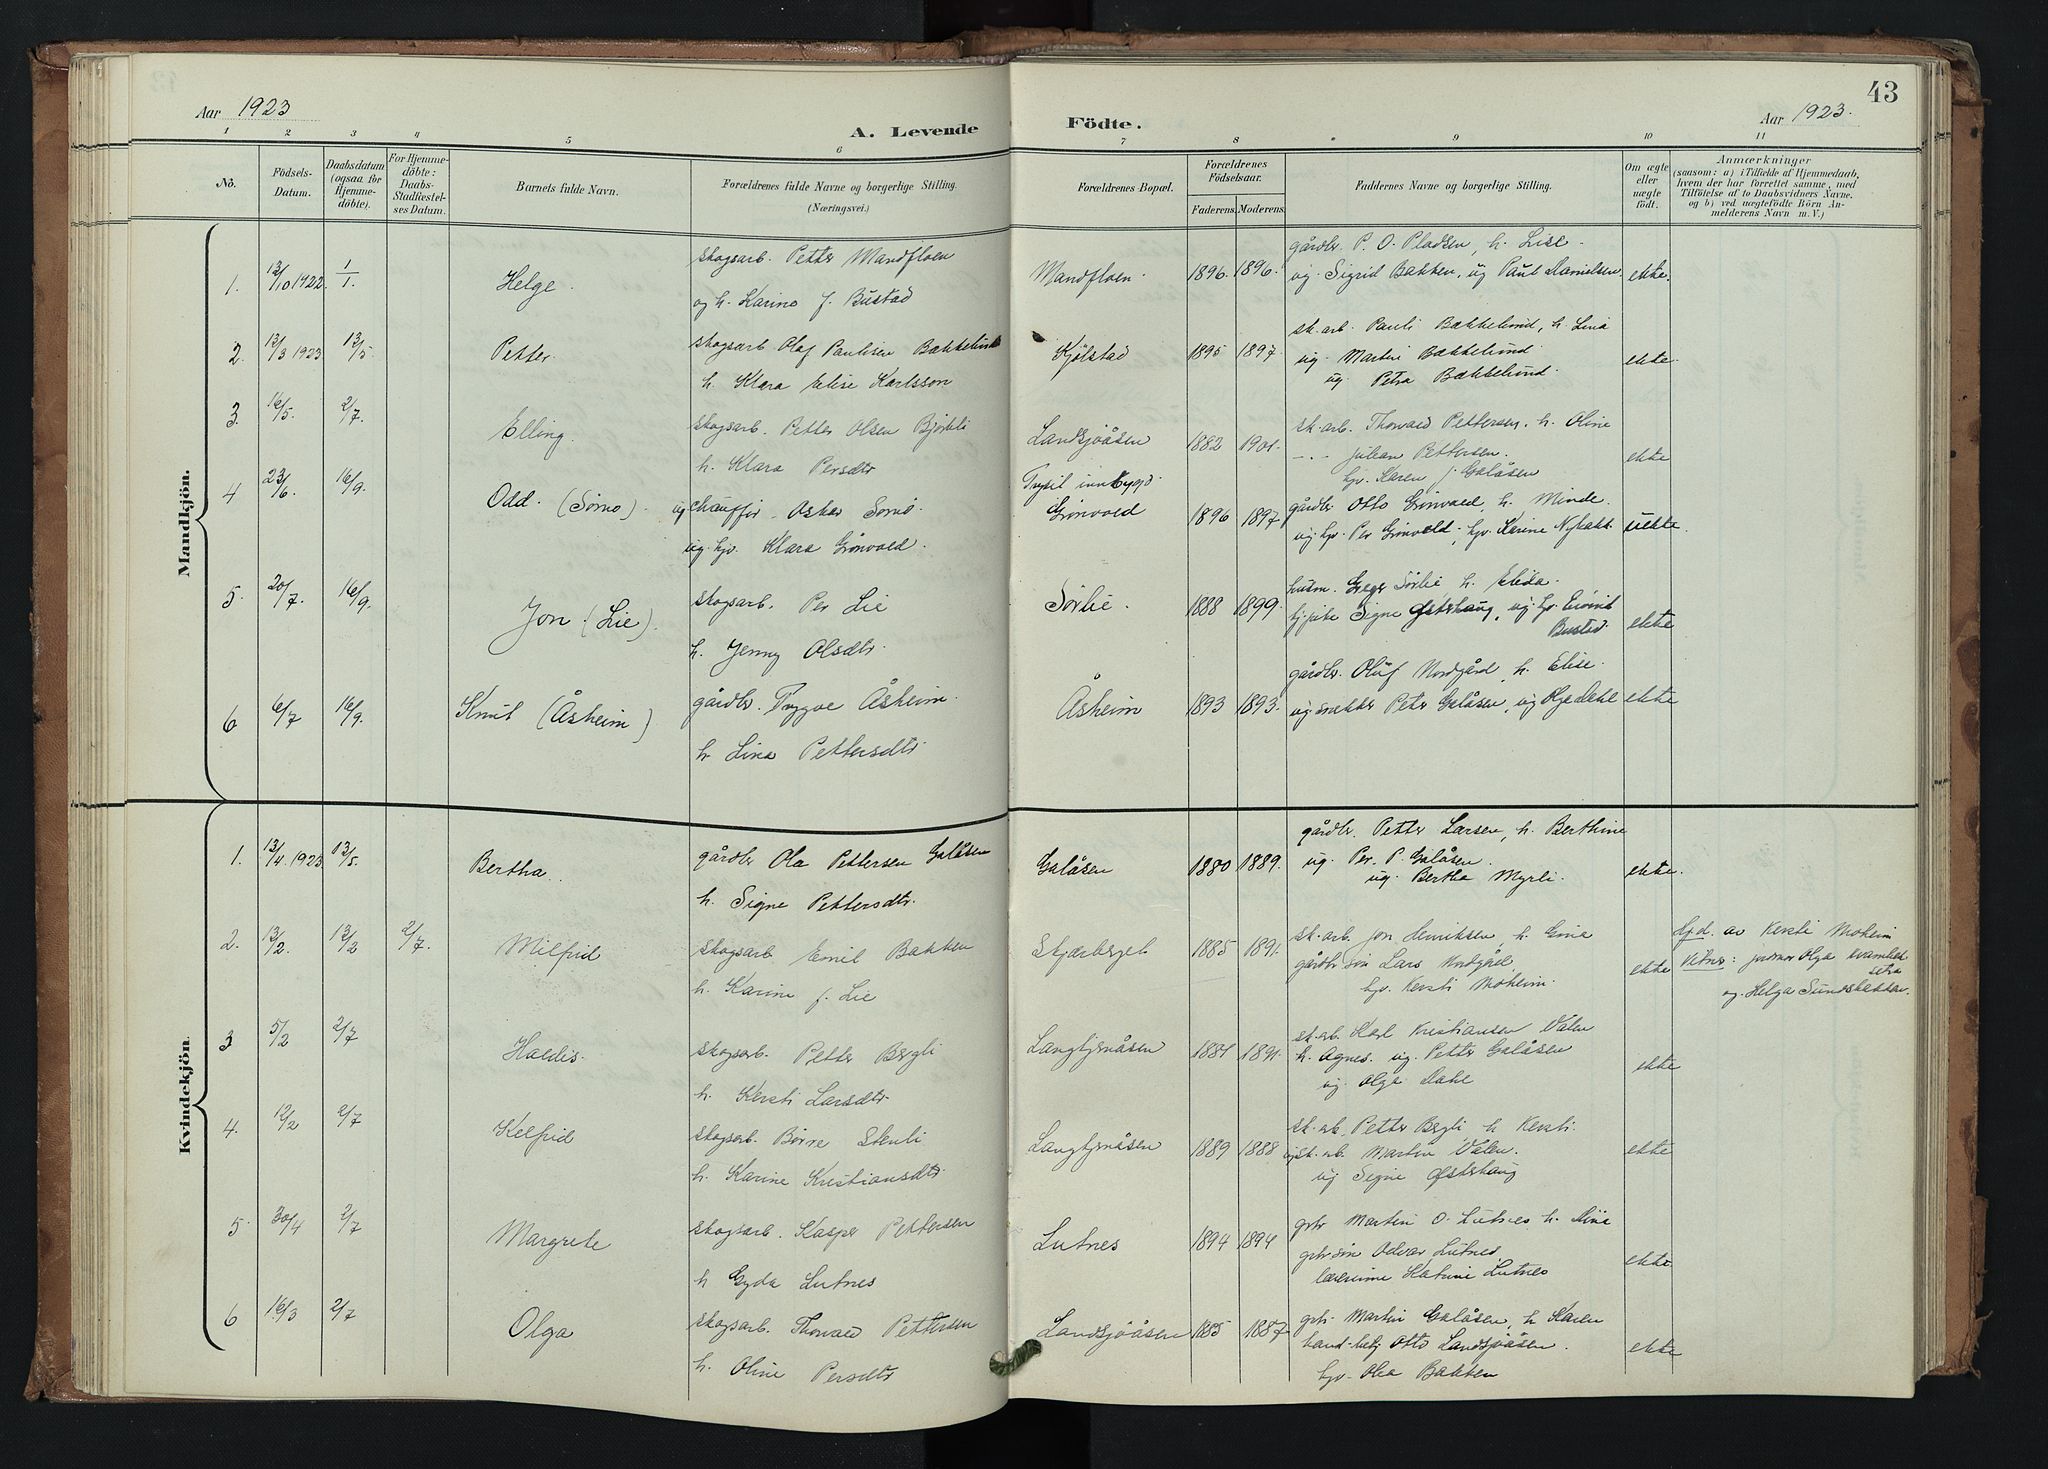 43
Aar 1923
A. Levende
Födte.
Aar 1923.
1 2 3 4 5 6 7 8 9 10 11
No.
Födsels-Datum.
Daabsdatum (ogsaa for Hjemme-döbte).
For Hjemme-döbte: Daabs-Stadfæstel-ses Datum.
Barnets fulde Navn.
Forældrenes fulde Navne og borgerlige Stilling.
(Næringsvei.)
Forældrenes Bopæl.
Forældrenes Födselsaar.
Faderens. Moderens.
Faddernes Navne og borgerlige Stilling.
Om ægte eller uægte födt.
Anmærkninger
(saasom: a) i Tilfælde af Hjemmedaab, hvem der har forrettet samme, med Tilföielse af to Daabsvidners Navne. og b) ved uægtefödte Börn An-melderens Navn m. V.)
Mandkjön.
1. 13/10 1922. 1/1 Helge. skogsarb. Petter Mandfloen
og h. Karine f. Bustad
Mandfloen. 1896. 1896.
gårdbr. P. O. Pladsen, h. Lise.
ug. Sigrid Bakken, ug Paul Danielsen. ekte.
2. 13/3 1923 13/5. Petter. skogsarb Olaf Paulsen Bækkelund
h. Klara Elise Karlsson
Kjølstad 1895 1897
sk.arb. Pauli Bækkelund, h. Lina
ug. Martin Bækkelund
ug. Petra Bækkelund. ekte.
3. 16/5. 2/7. Elling. skogsarb. Petter Olsen Bjørkli
h. Klara Persdtr
Landsjøåsen 1882 1901.
sk.arb. Thorvald Pettersen, h. Oline
-.- Julian Pettersen.
hjv. Karen f Galåsen ekte
4 23/6. 16/9. Odd. (Sømo). ug chauffør Oskar Sømo
ug. hjv. Klara Grønvold.
Trysil innbygd
Grønvold 1896 1897
gårdbr Otto Grønvold, h. Minde.
ug. hjv. Per Grønvold, hjv. Karine Nybakk uekte.
5. 20/7. 16/9. Jon (Lie). skogsarb. Per Lie
h. Jenny Olsdtr.
Sørlie. 1888 1899
husm. Greger Sørlie h. Elida.
Signe Østerhaug, ug. hjv. Eivind
Bustad. ekte
6 6/7 16/9. Knut (Åsheim) gårdbr. Trygve Åsheim.
h. Lina Pettersdtr.
Åsheim 1893 1893.
gårdbr. Oluf Nordgård, h. Elise.
ug. snekker Peter Galåsen, ug Dahl ekte
Kvindekjön.
1. 13/4. 1923 13/5. Bertha. gårdbr Ola Pettersen Galåsen
h. Signe Pettersdtr.
Galåsen 1880 1889.
gårdbr. Petter Larsen, h. Berthine
ug. Per P. Galåsen.
ug. Bertha Myrli. ekte.
2. 13/2. 13/2 2/7. Milfrid skogsarb Emil Bakken
h. Karine f. Lie
Skjærberget 1885 1891.
sk.arb. Jon Henriksen, h. Gina
gårdbr søn Lars Nordgård.
hjv. Kersti Moheim. ekte
Hjd. av Kersti Moheim
Vitner: jordmor Olga
og Helga Sundbakken.
3 5/2 2/7 Haldis. skogsarb. Petter Bergli
h. Kersti Larsdtr
Langtjernåsen 1884 1891.
sk.arb. Karl Kristiansen Vålen
h. Agnes. ug. Petter Galåsen
ug Olga Dahl ekte
4. 12/2 2/7 Kelfrid skogsarb. Børre Stenli
h. Karine Kristiansdtr
Langtjernåsen 1889 1888
sk.arb. Petter Bergli h Kersti.
ug sk.arb. Martin Vålen.
ug Signe Østerhaug ekte
5. 30/4 2/7 Margrete skogsarb. Kasper Pettersen
h Gyda Lutnes
Lutnes 1894 1894
gbr Martin O. Lutnes h. Dina
gbr.søn Odvar Lutnes
lærerinne Katrine Lutnes ekte
6 16/3 2/7 Olga skogsarb. Thorvald Pettersen
h. Oline Persdtr
Landsjøåsen 1885 1887
gbr. Martin Galåsen, h Karen
hand-betj Otto Landsjøåsen.
hjv. Olea Bakken ekte